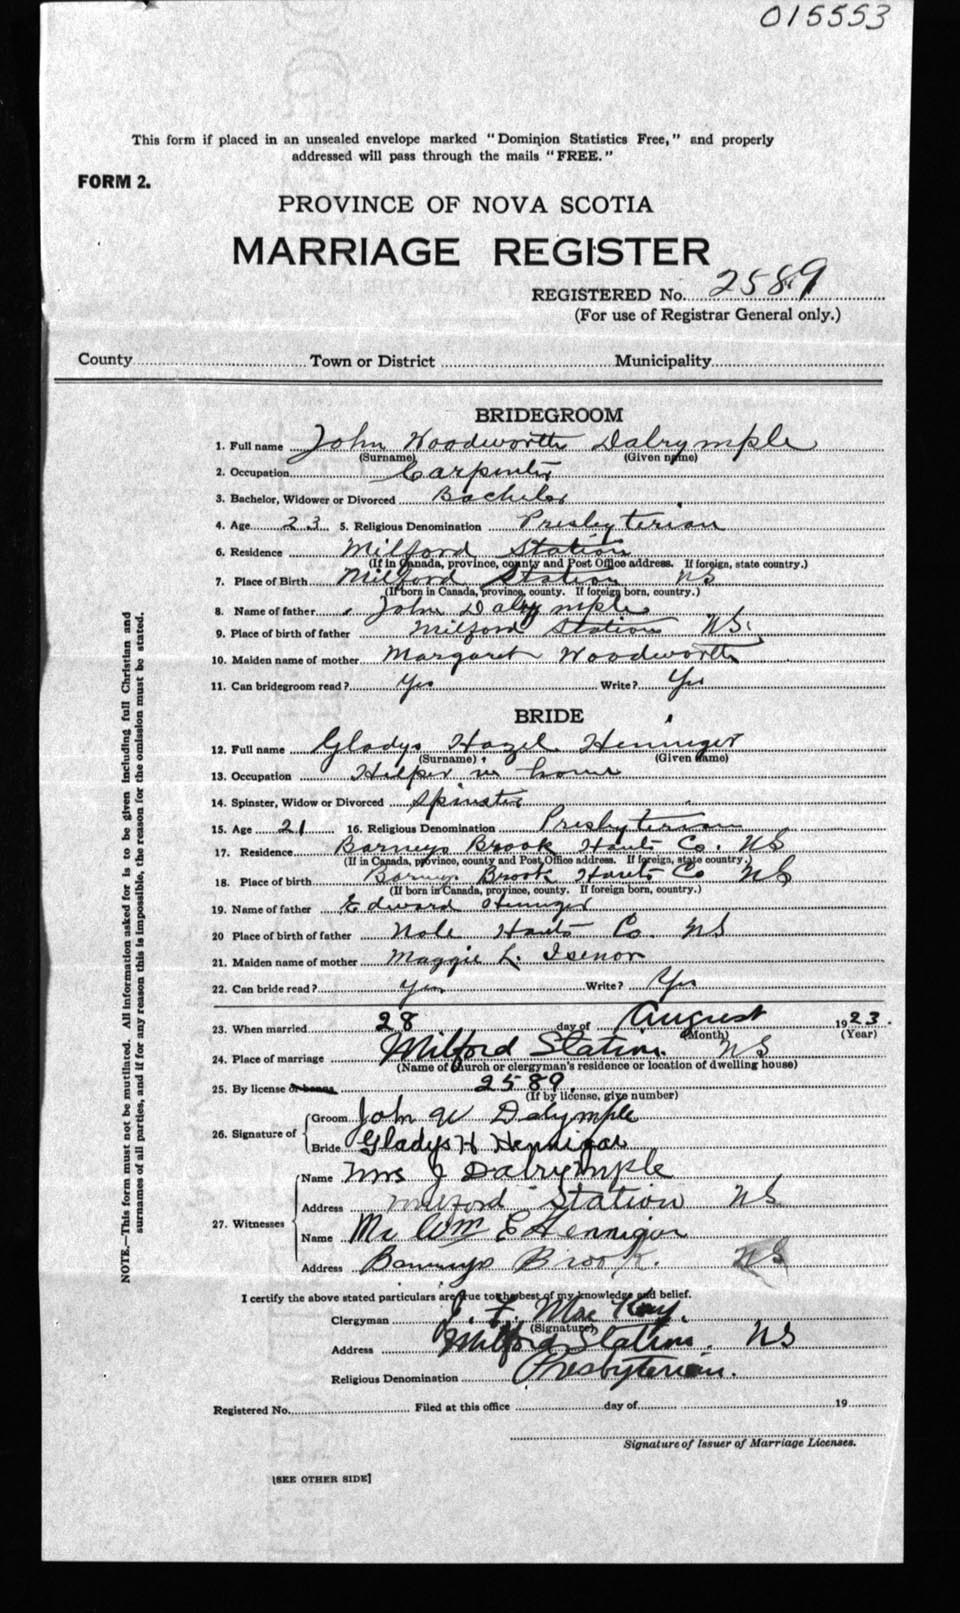 015553
This form if placed in an unsealed envelope marked "Dominion Statistics Free," and properly
addressed will pass through the mails "FREE."
FORM 2.
PROVINCE OF NOVA SCOTIA
MARRIAGE REGISTER
REGISTERED No. 2589
(For use of Registrar General only.)
County Town or District Municipality
BRIDEGROOM
1. Full name John Woodworth Dalrymple
(Surname) (Given name)
2. Occupation Carpenter
3. Bachelor, Widower or Divorced Bachelor
4. Age 23 5. Religious Denomination Presbyterian
6. Residence Milford Station
(If in Canada, province, county and Post Office address. If foreign, state country.)
7. Place of Birth Milford Station NS
(If born in Canada, province, county. If foreign born, country.)
8. Name of father John Dalrymple
9. Place of birth of father Milford Station NS.
10. Maiden name of mother Margaret Woodworth
11. Can bridegroom read? Yes Write? Yes
BRIDE
12. Full name Gladys Hazel Henniger
(Surname) (Given name)
13. Occupation Helper in home
14. Spinster, Widow or Divorced Spinster
15. Age 21 16. Religious Denomination Presbyterian
17. Residence Barneys Brook Hants Co. NS
(If in Canada, province, county and Post Office address. If foreign, state country.)
18. Place of birth Barneys Brook Hants Co NS
(If born in Canada, province, county. If foreign born, country.)
19. Name of father Edward Henniger
20 Place of birth of father Hants Co. NS
21. Maiden name of mother Maggie L. Isenor
22. Can bride read? Yes Write? Yes
23. When married 28 day of August 1923.
(Month) (Year)
24. Place of marriage Milford Station. NS
(Name of church or clergyman's residence or location of dwelling house)
25. By license or banns 2589.
(If by license, give number)
26. Signature of Groom John W Dalymple
Bride Gladys H Hennigar
27. Witnesses Name Mrs J Dalrymple
Address Milford Station NS
Name Mr Wm E Hennigar
Address Barneys Brook. NS
I certify the above stated particulars are true to the best of my knowledge and belief.
Clergyman J. F. MacKay.
(Signature)
Address Milford Station. NS
Religious Denomination Presbyterian.
Registered No. Filed at this office day of 19
Signature of Issuer of Marriage Licenses.
[SEE OTHER SIDE]
NOTE.—This form must not be mutilated. All information asked for is to be given including full Christian and
surnames of all parties, and if for any reason this is impossible, the reason for the omission must be stated.